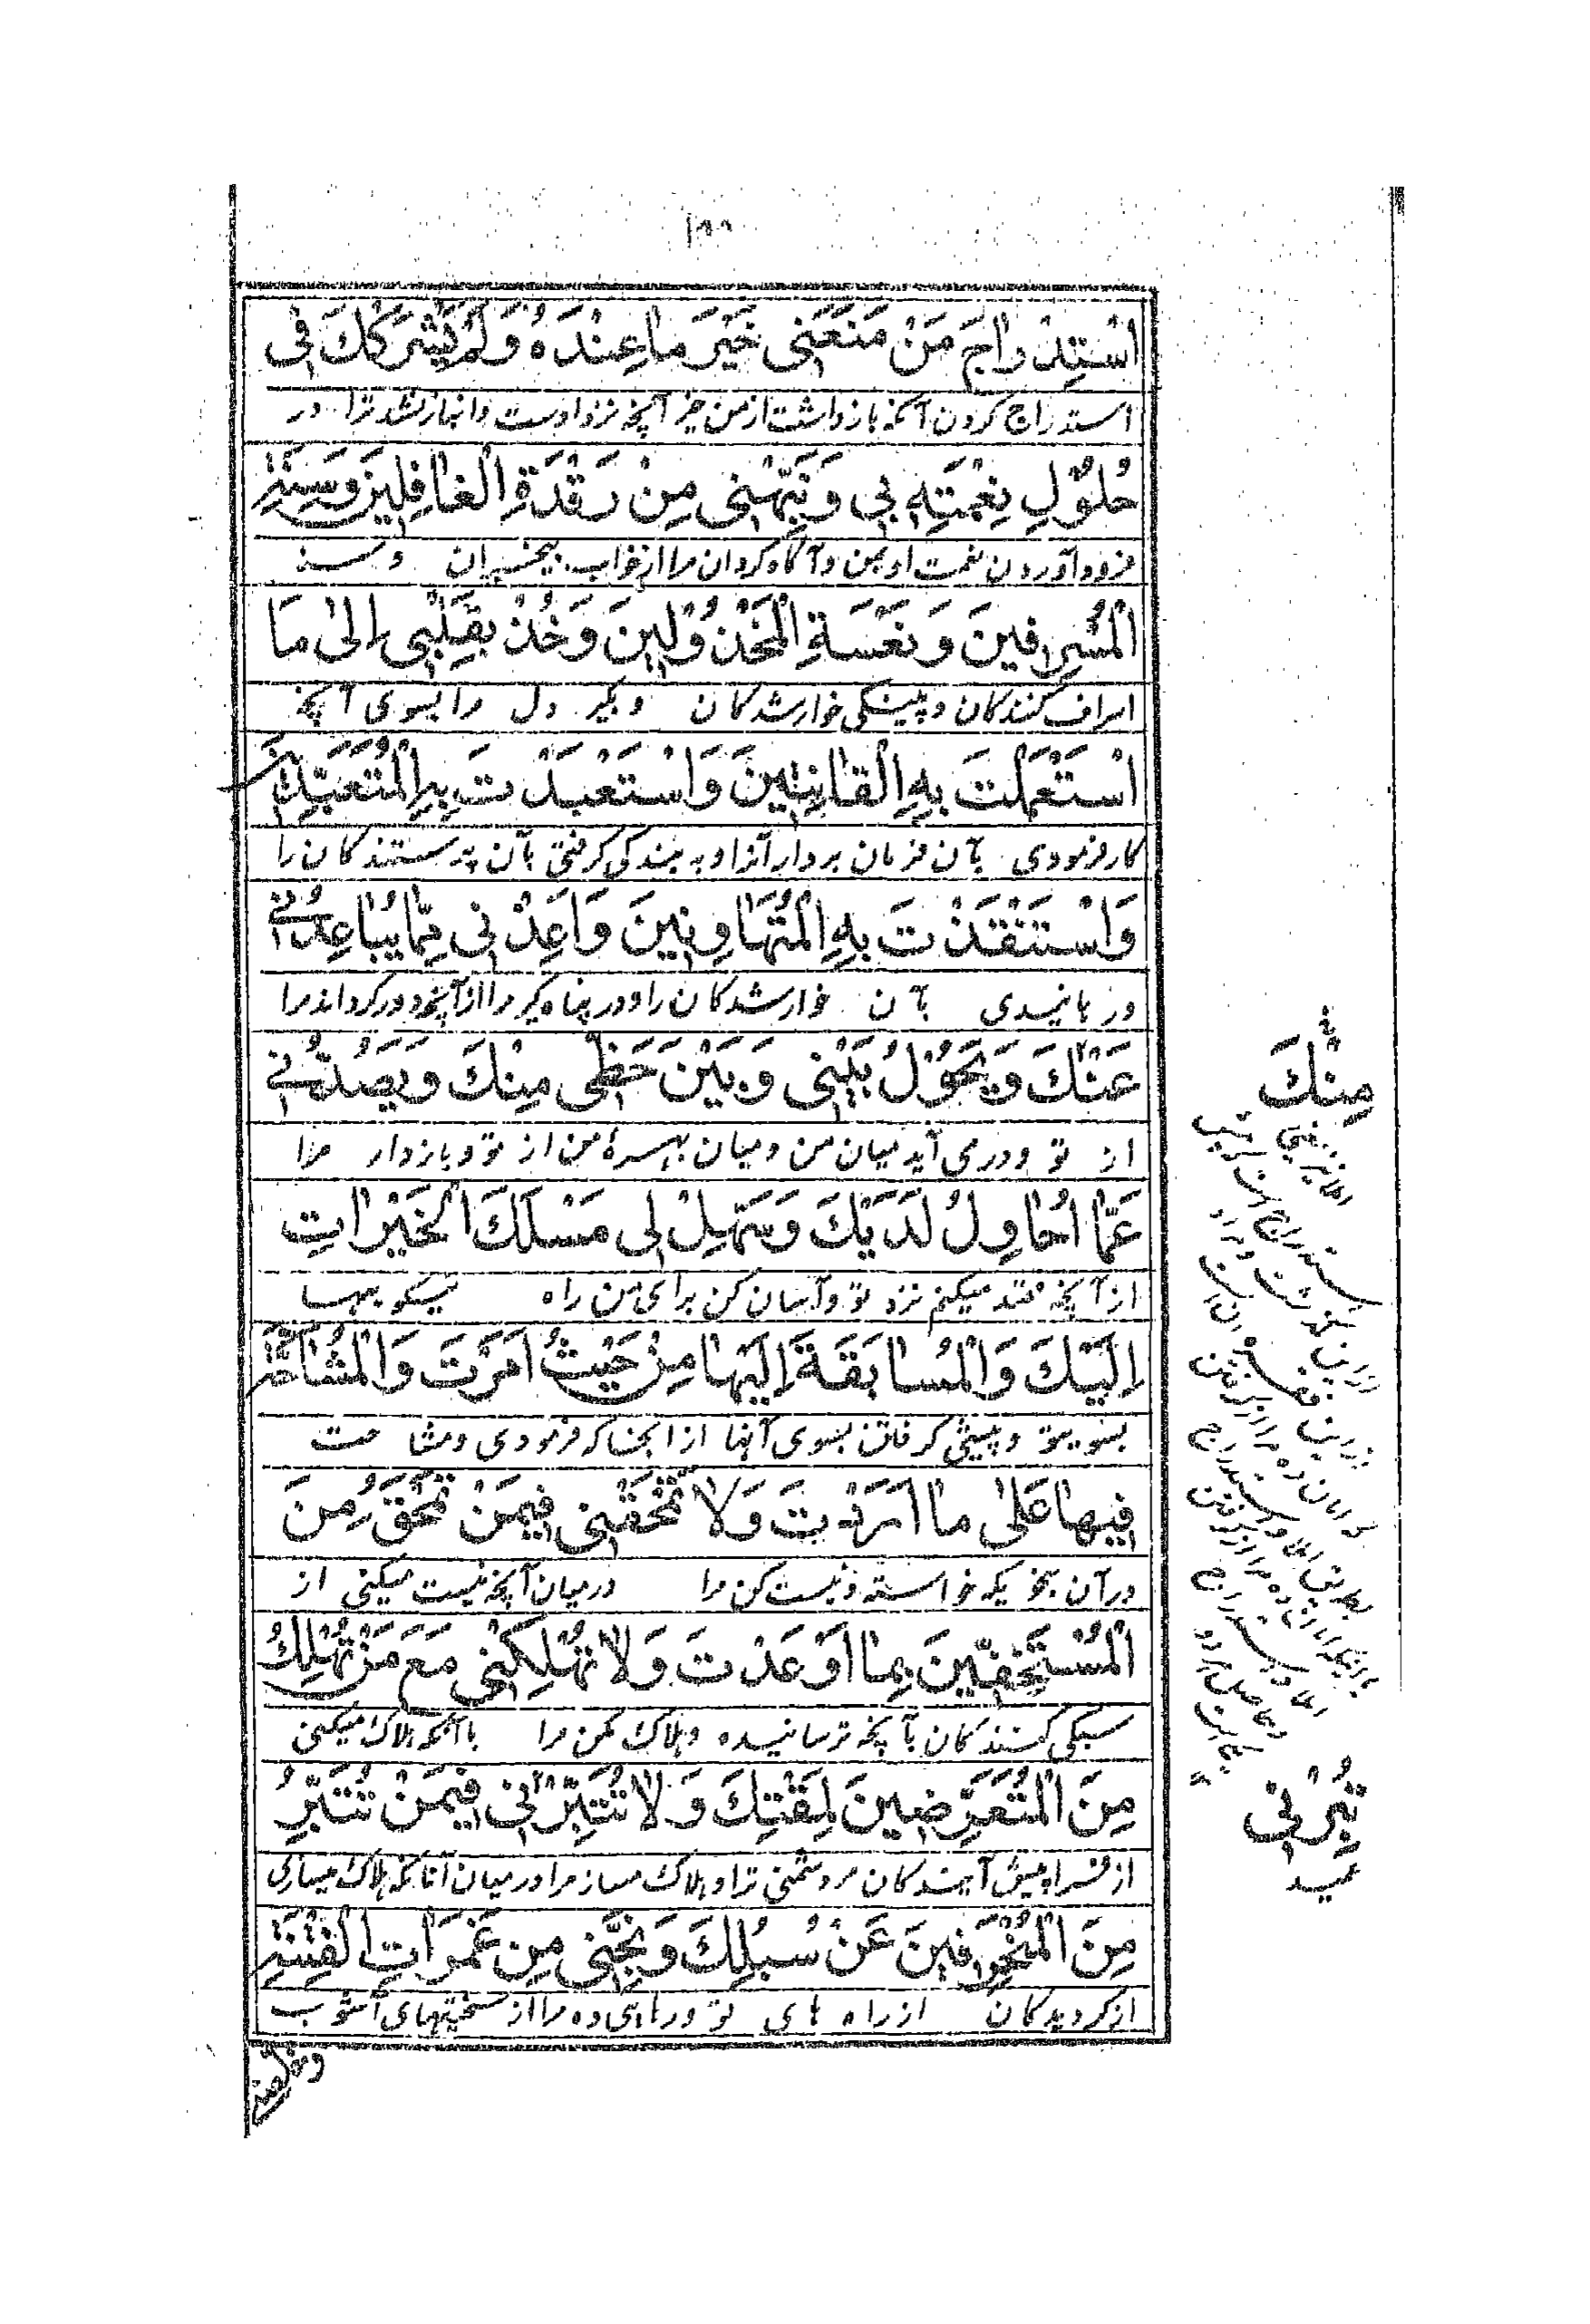 ۱۵۵
اسْتِدْرَاجَ مَنْ مَنَعَنِی خَیْرَ مَا عِنْدَهُ وَلَمْ یَشْرَکْکَ فِی
استدراج کردن آنکه بازداشت از من خیر آنچه نزد اوست و انباز نشد ترا در
حُلُولِ نِعْمَتِهِ بِی وَنَبِّهْنِی مِنْ رَقْدَةِ الْغَافِلِینَ وَسِنَةِ
فرود آوردن نعمت او بمن و آگاه گردان مرا از خواب بیخبران و سنه
الْمُسْرِفِینَ وَنَعْسَةِ الْمَخْذُولِینَ وَخُذْ بِقَلْبِی إِلَی مَا
اسراف کنندگان و پینکی خوارشدگان و بگیر دل مرا بسوی آنچه
اسْتَعْمَلْتَ بِهِ الْقَانِتِینَ وَاسْتَعْبَدْتَ بِهِ الْمُتَعَبِّدِینَ
کار فرمودی بآن فرمان بردارانرا و به بندگی گرفتی بآن پرستندگان را
وَاسْتَنْقَذْتَ بِهِ الْمُتَهَاوِنِینَ وَأَعِذْنِی مِمَّا یُبَاعِدُنِی
ورهانیدی بآن خوارشدگان را و در پناه گیر مرا از آنچه دور گرداند مرا
عَنْکَ وَیَحُولُ بَیْنِی وَبَیْنَ حَظِّی مِنْکَ وَیَصُدُّنِی
از تو و درمی آید میان من و میان بهرۀ من از تو و بازدارد مرا
عَمَّا أُحَاوِلُ لَدَیْکَ وَسَهِّلْ لِی مَسْلَکَ الْخَیْرَاتِ
از آنچه قصد میکنم نزد تو و آسان کن برای من راه نیکویها
إِلَیْکَ وَالْمُسَابَقَةَ إِلَیْهَا مِنْ حَیْثُ أَمَرْتَ وَالْمُشَاحَّةَ
بسوی تو و پیشی گرفتن بسوی آنها از آنجا که فرمودی و مشاحت
فِیهَا عَلَی مَا أَرَدْتَ وَلَا تَمْحَقْنِی فِیمَنْ تَمْحَقُ مِنَ
در آن بنحویکه خواسته و نیست مکن مرا در میان آنچه نیست میکنی از
الْمُسْتَخِفِّینَ بِمَا أَوْعَدْتَ وَلَا تُهْلِکْنِی مَعَ مَنْ تُهْلِکُ
سبکی کنندگان بآنچه ترسانیده و هلاک مکن مرا با آنکه هلاک میکنی
مِنَ الْمُتَعَرِّضِینَ لِمَقْتِکَ وَلَا تُتَبِّرْنِی فِیمَنْ تُتَبِّرُ
از فراپیش آیندگان مر دشمنی ترا و هلاک مساز مرا در میان آنانکه هلاک میسازی
مِنَ الْمُنْحَرِفِینَ عَنْ سُبُلِکَ وَنَجِّنِی مِنْ غَمَرَاتِ الْفِتْنَةِ
از گردیدگان از راه های تو و رهایی ده مرا از سختیهای آشوب
وخلصنی
مِنْکَ
تُبِرْنِی
عمید